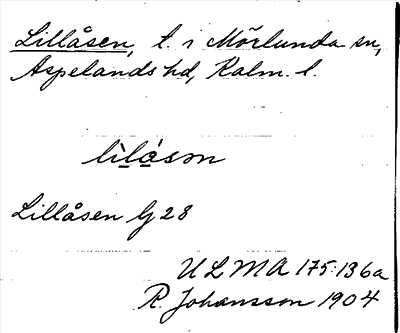 Lillåsen, t. i Mörlunda sn,
Aspelands hd, Kalm. l.
lìlåsən
Lillåsen G 28
ULMA 175:136a
R. Johansson 1904